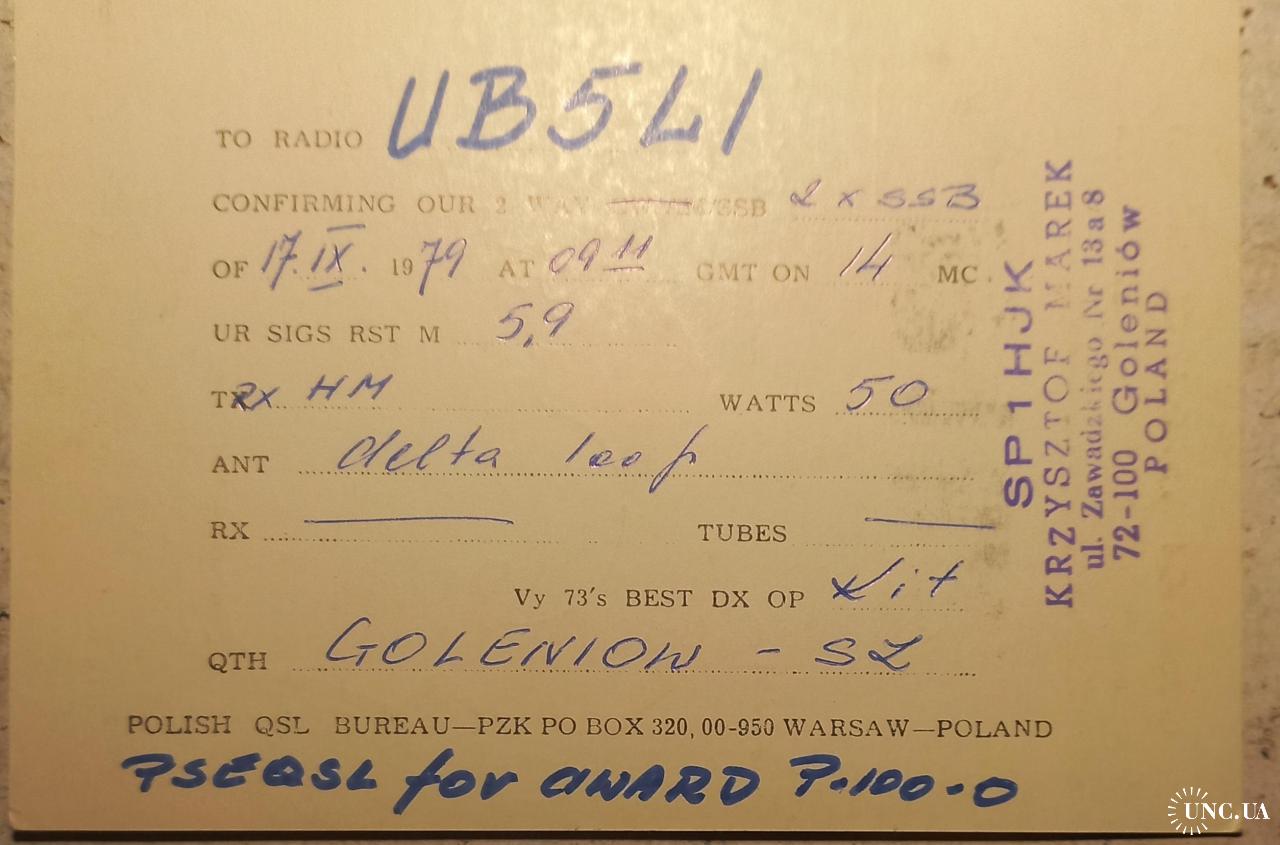 TO RADIO UB5LI
CONFIRMING OUR 2 WAY SSB 2 x SSB
OF 17.IX. 1979 AT 09 11 GMT ON 14 MC.
UR SIGS RST M 5,9
TX HM WATTS 50
ANT delta loop
RX TUBES
Vy 73's BEST DX OP
QTH GOLENIOW - SZ
POLISH QSL BUREAU—PZK PO BOX 320, 00-950 WARSAW—POLAND
PSEQSL for AWARD P-100-O
SP1HJK
KRZYSZTOF MAREK
ul. Zawadzkiego Nr 13a8
72-100 Goleniów
POLAND
UNC.UA